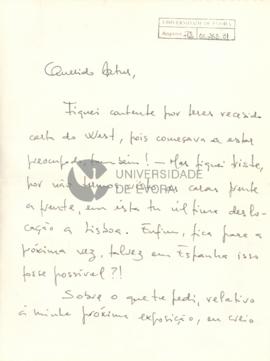 UNIVERSIDADE DE ÉVORA
Querido Artur,
Fiquei contente por teres recebido
carta do West, pois começava a estar
preocupado também! — Mas fiquei triste,
por não termos visto as caras frente
a frente, em esta tu última deslo-
cação a Lisboa. Enfim, fica para a
próxima vez, talvez em Espanha isso
fosse possível?!
Sobre o que te pedi, relativo
à minha próxima exposição, eu creio
UNIVERSIDADE
DE ÉVORA